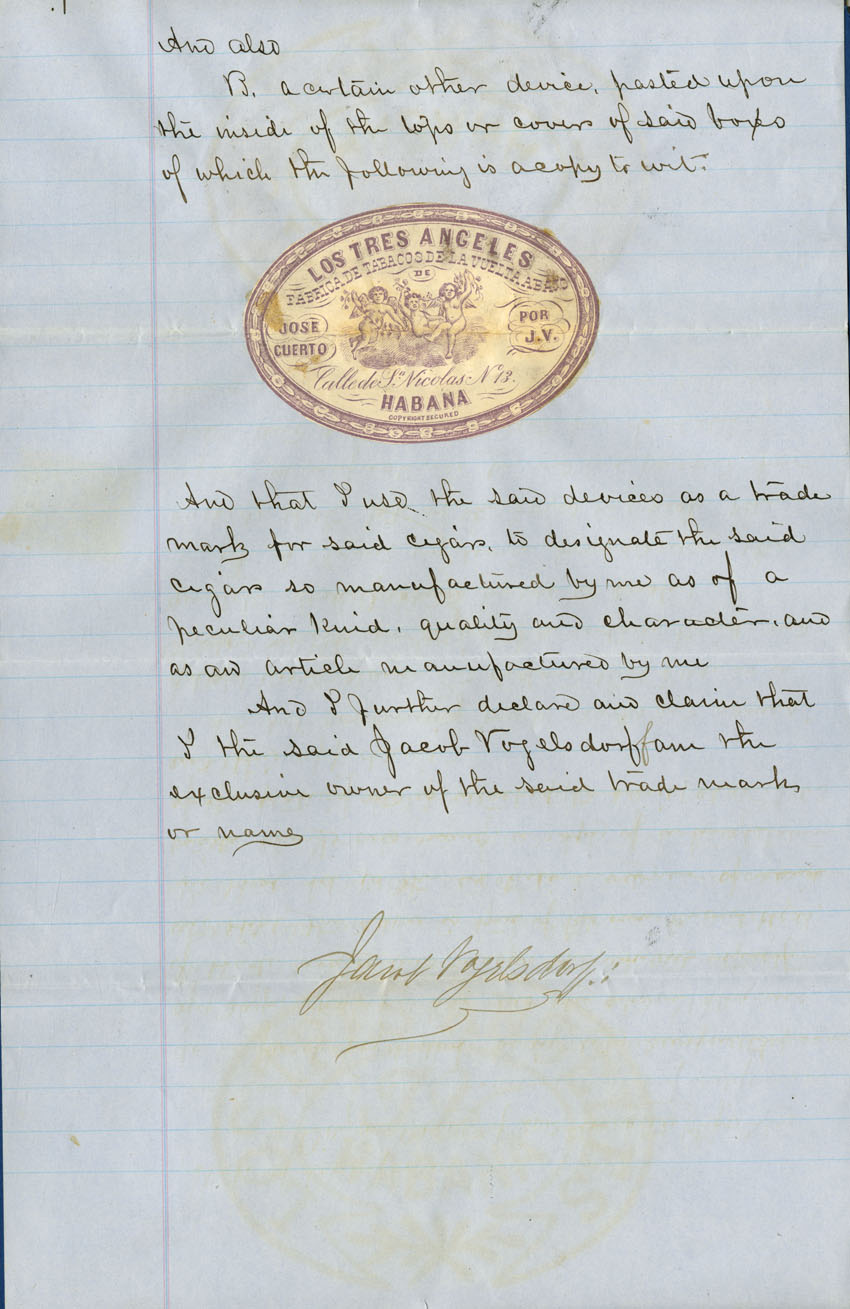 And also
B. a certain other device, pasted upon
the inside of the tops or covers of said boxes
of which the following is a copy to wit:
LOS TRES ANGELES
FABRICA DE TABACOS DE LA VUELTA ABAJO
DE
JOSE CUERTO
POR J.V.
Calle de Sn Nicolas No 13.
HABANA
COPYRIGHT SECURED
And that I use the said devices as a trade
mark for said cigars, to designate the said
cigars so manufactured by me as of a
peculiar kind, quality and character, and
as an article manufactured by me
And I further declare and claim that
I the said Jacob Vogelsdorff am the
exclusive owner of the said trade mark
or name
Jacob Vogelsdorff